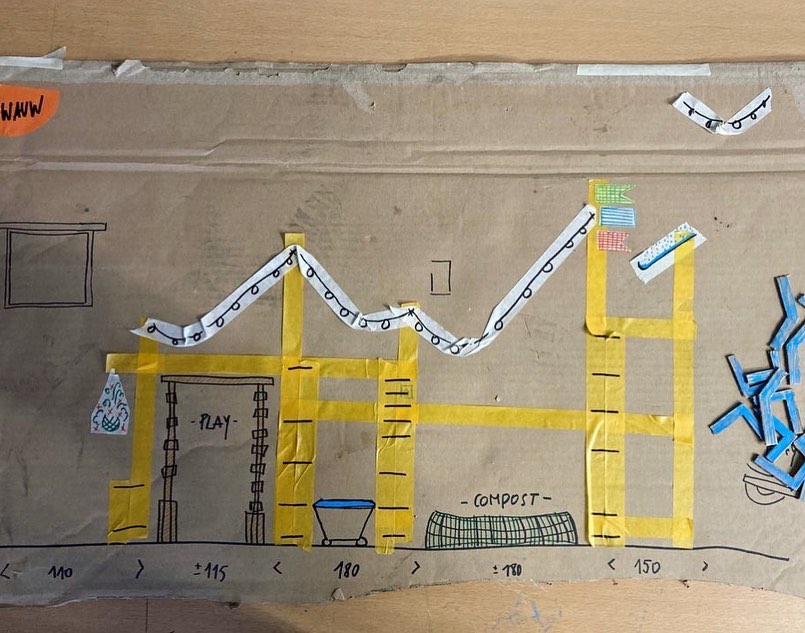 WAUW
- PLAY -
- COMPOST -
< 110 > ±115 < 180 > ±180 < 150 >